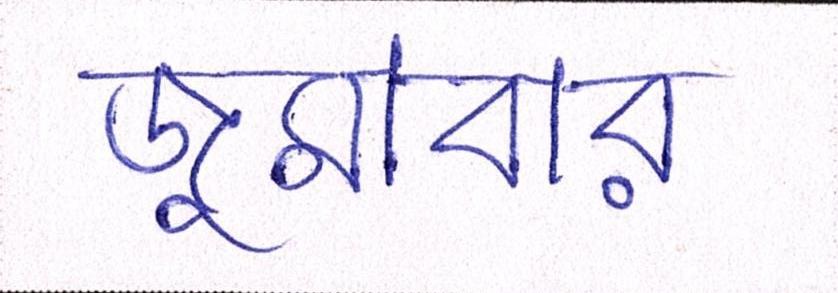 জুমাবার